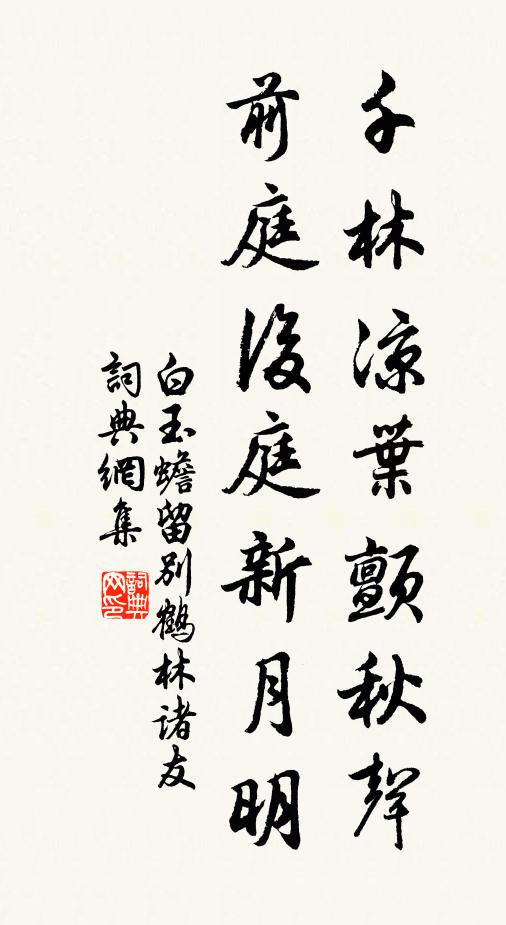 千林凉葉顫秋聲
前庭後庭新月明
白玉蟾留別鶴林諸友
詞典網集
詞典
网印